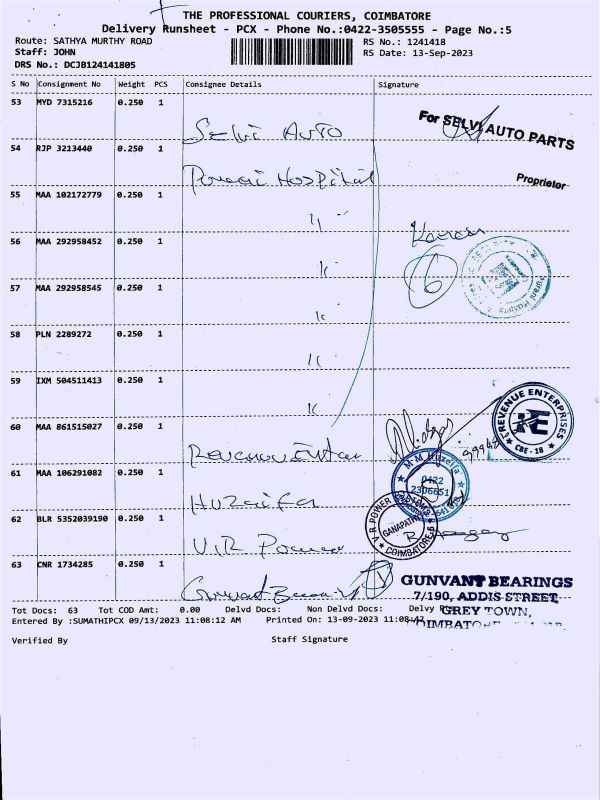 THE PROFESSIONAL COURIERS, COIMBATORE
Delivery Runsheet - PCX - Phone No.:0422-3505555 - Page No.:5
Route: SATHYA MURTHY ROAD RS No.: 1241418
Staff: JOHN RS Date: 13-Sep-2023
DRS No.: DCJB124141805
S No Consignment No Weight PCS Consignee Details Signature
53 MYD 7315216 0.250 1 Selvi Auto
For SELVI AUTO PARTS
Proprietor
54 RJP 3213440 0.250 1 Hospital
55 MAA 102172779 0.250 1 "
56 MAA 292958452 0.250 1 "
57 MAA 292958545 0.250 1 "
6
58 PLN 2289272 0.250 1 "
59 IXM 504511413 0.250 1 "
REVENUE ENTERPRISES
RE
CBE - 18
60 MAA 861515027 0.250 1
61 MAA 106291082 0.250 1 Huzaifa
M.M. Huzeifa
0422
2306651
62 BLR 5352039190 0.250 1 V.R Power
V.R POWER
GANAPATHY
COIMBATORE-6
63 CNR 1734285 0.250 1 Gunvant
GUNVANT BEARINGS
7/190, ADDIS STREET,
GREY TOWN,
Tot Docs: 63 Tot COD Amt: 0.00 Delvd Docs: Non Delvd Docs:
Entered By :SUMATHIPCX 09/13/2023 11:08:12 AM Printed On: 13-09-2023
Verified By Staff Signature